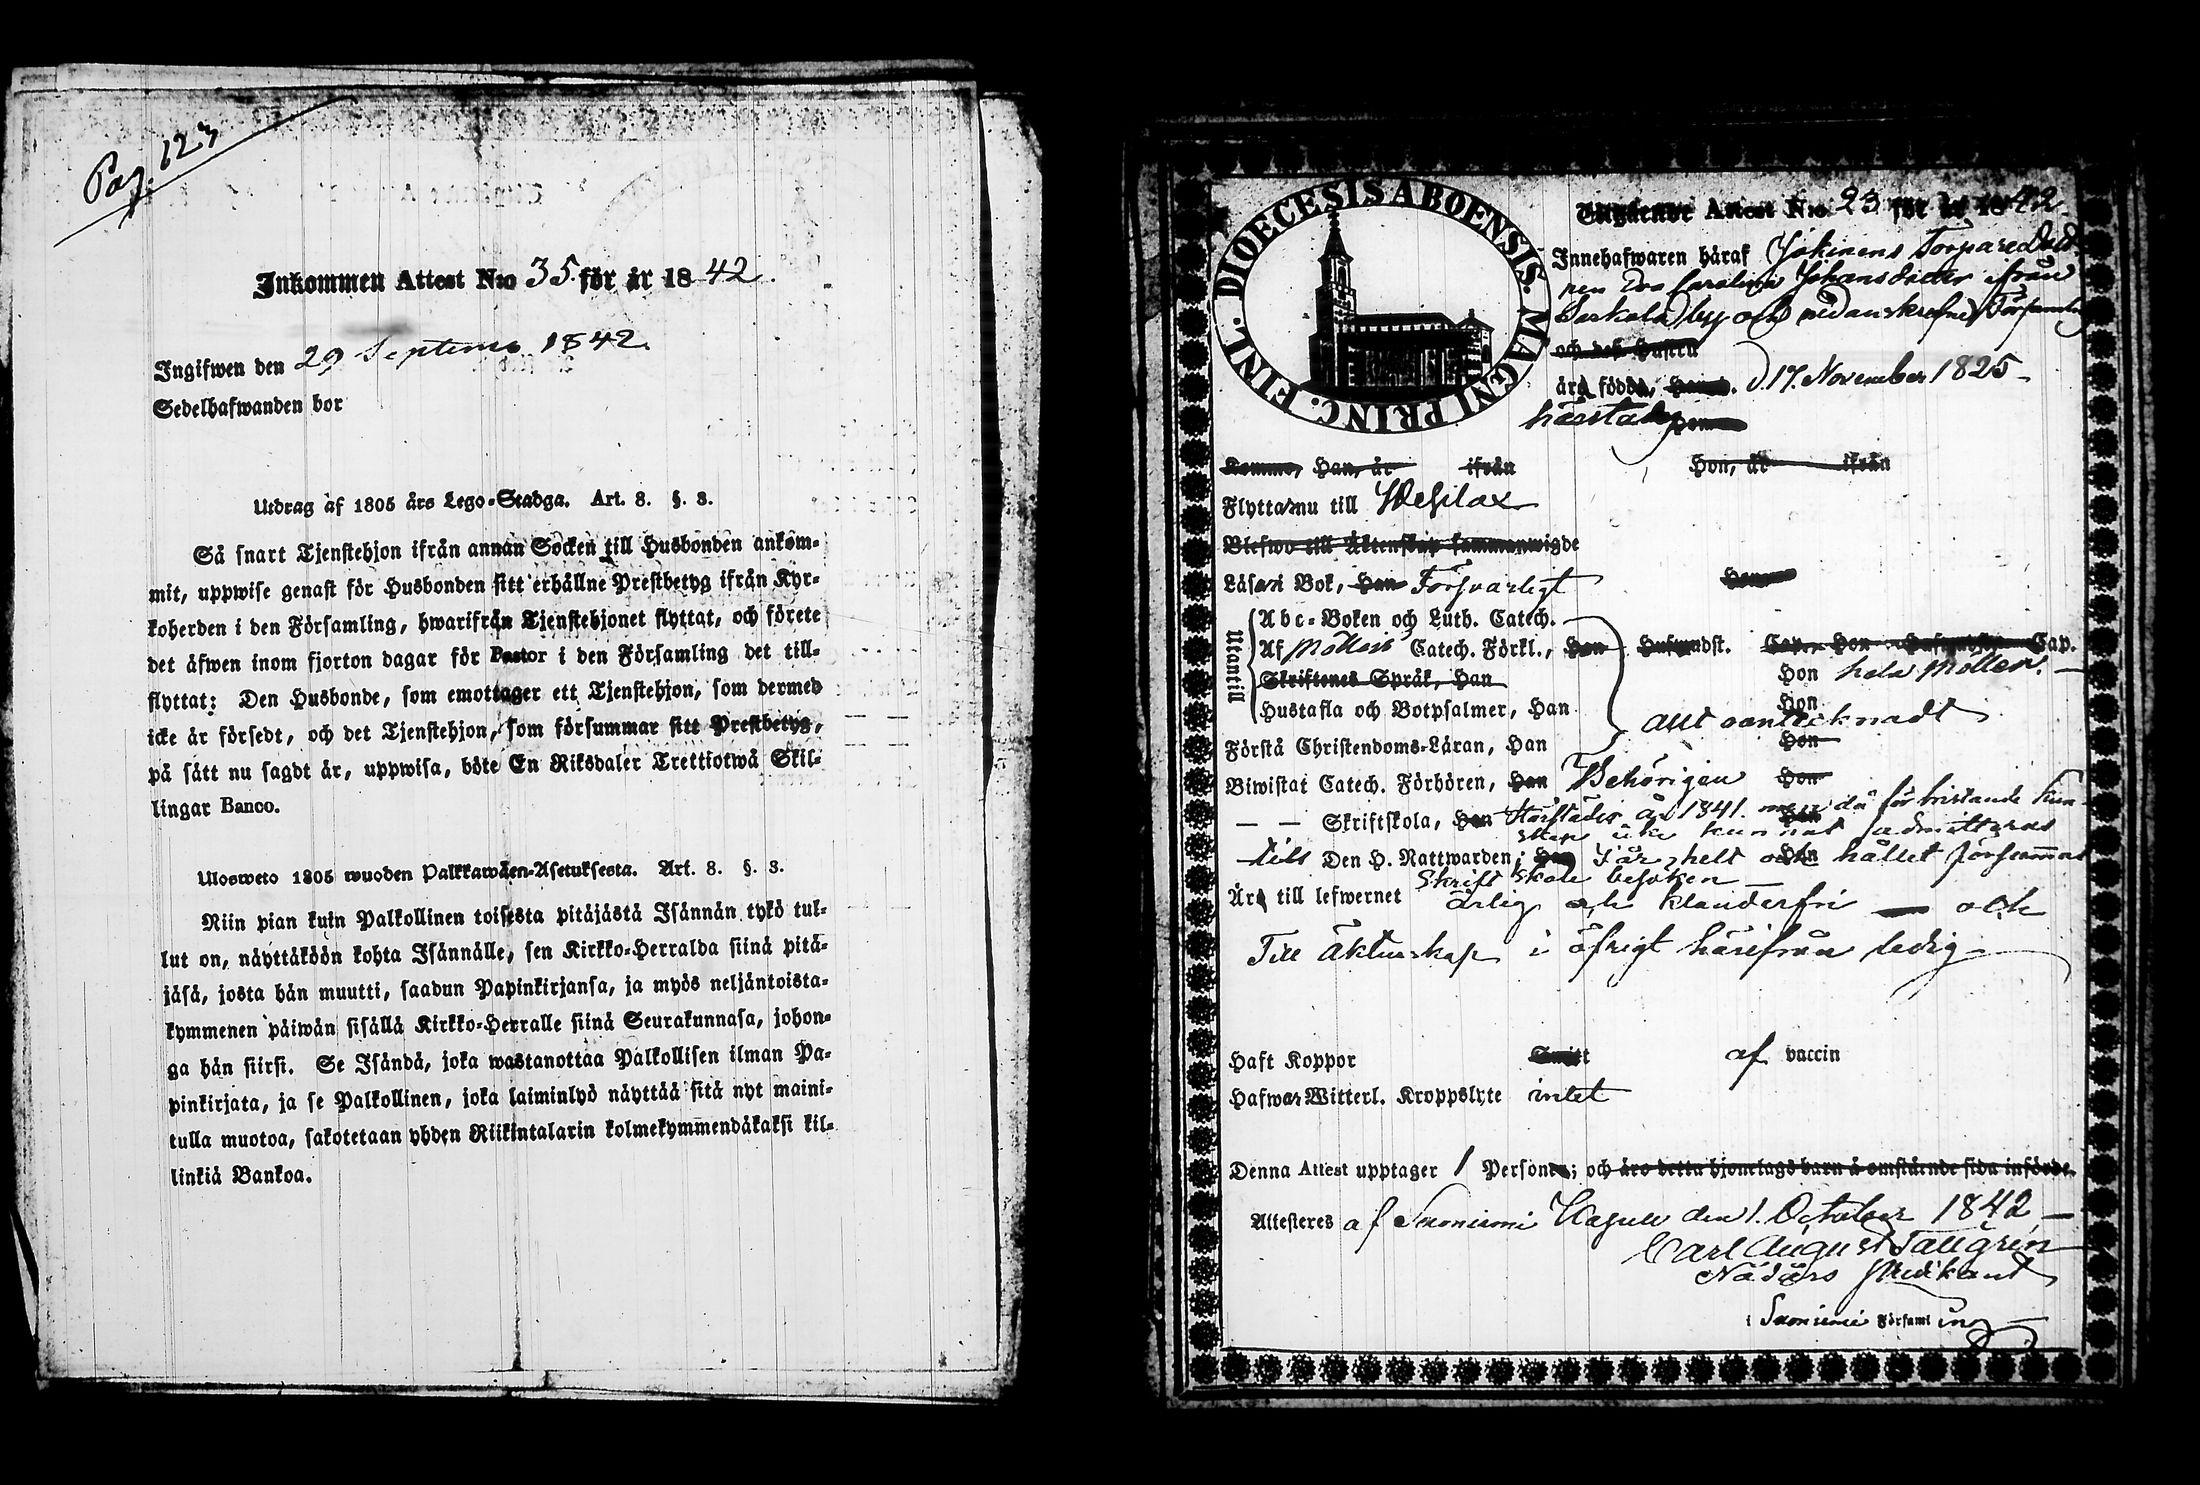 Pag. 123
Inkommen Attest N:o 35 för år 1842.
Ingifwen den 29 Septemb 1842.
Sedelhafwanden bor
Utdrag af 1805 års Lego-Stadga. Art. 8. §. 3.
Så snart Tjenstehjon ifrån annan Socken till Husbonden ankom-
mit, uppwise genast för Husbonden sitt erhållne Prestbetyg ifrån Kyr-
koherden i den Församling, hwarifrån Tjenstehjonet flyttat, och förete
det äfwen inom fjorton dagar för Pastor i den Församling det till-
flyttat: Den Husbonde, som emottager ett Tjenstehjon, som dermed
icke är försedt, och det Tjenstehjon, som försummar sitt Prestbetyg,
på sätt nu sagdt är, uppwisa, böte En Riksdaler Trettiotwå Skil-
lingar Banco.
Ulosweto 1805 wuoden Palkkawäen-Asetuksesta. Art. 8. §. 3.
Niin pian kuin Palkollinen toisesta pitäjästä Isännän tykö tul-
lut on, näyttäköön kohta Isännälle, sen Kirkko-Herralda siinä pitä-
jäsä, josta hän muutti, saadun Papinkirjansa, ja myös neljäntoista-
kymmenen päiwän sisällä Kirkko-Herralle siinä Seurakunnasa, johon-
ga hän siirsi. Se Isändä, joka wastanottaa Palkollisen ilman Pa-
pinkirjata, ja se Palkollinen, joka laiminlyö näyttää sitä nyt maini-
tulla muotoa, sakotetaan yhden Riikintalarin kolmekymmendäkaksi kil-
linkiä Bankoa.
DIOECESIS ABOENSIS. MAGNI PRINC. FINL.
Utgående Attest N:o 23 för år 1842.
Innehafwaren häraf Torpared
Eva Carolina Johansdotter ifrån
by och nedanskrefne Församling
och dess Hustru
äro födde, d. 17. November 1825
härstädes
Komne, Han, år ifrån Hon, år ifrån
Flytta nu till Wesilax
Blefwo till Äktenskap sammanwigde
Läsa i Bok, Han Försvarligt
Utantill
Abc-Boken och Luth. Catech.
Af Möllers Catech. Förkl., Han Hufwudst. Cap. Hon Hufwudst. Cap.
Hon hela Möller.
Skriftenes Språk, Han
Hon
Hustafla och Botpsalmer, Han
allt oantecknadt
Förstå Christendoms-Läran, Han Hon
Biwistat Catech. Förhören, Han Behörigen Hon
— — Skriftskola, Han Härstädes år 1841. men då för bristande kun-
skap icke kunnat admitteras
tils Den H. Nattwarden; i år helt och hållet försummat
Skrift skole besöken
Äro till lefwernet ärlig och klanderfri — och
Till Äktenskap i öfrigt härifrån ledig
Haft Koppor af vaccin
Hafwa Witterl. Kroppslyte intet
Denna Attest upptager 1 Person; och äro detta hjonelags barn å omstående sida införde.
Attesteres af Suoniemi Capell den 1. October 1842 —
Carl August Tallgrén
Nådårs Predikant
i Suoniemi Församling